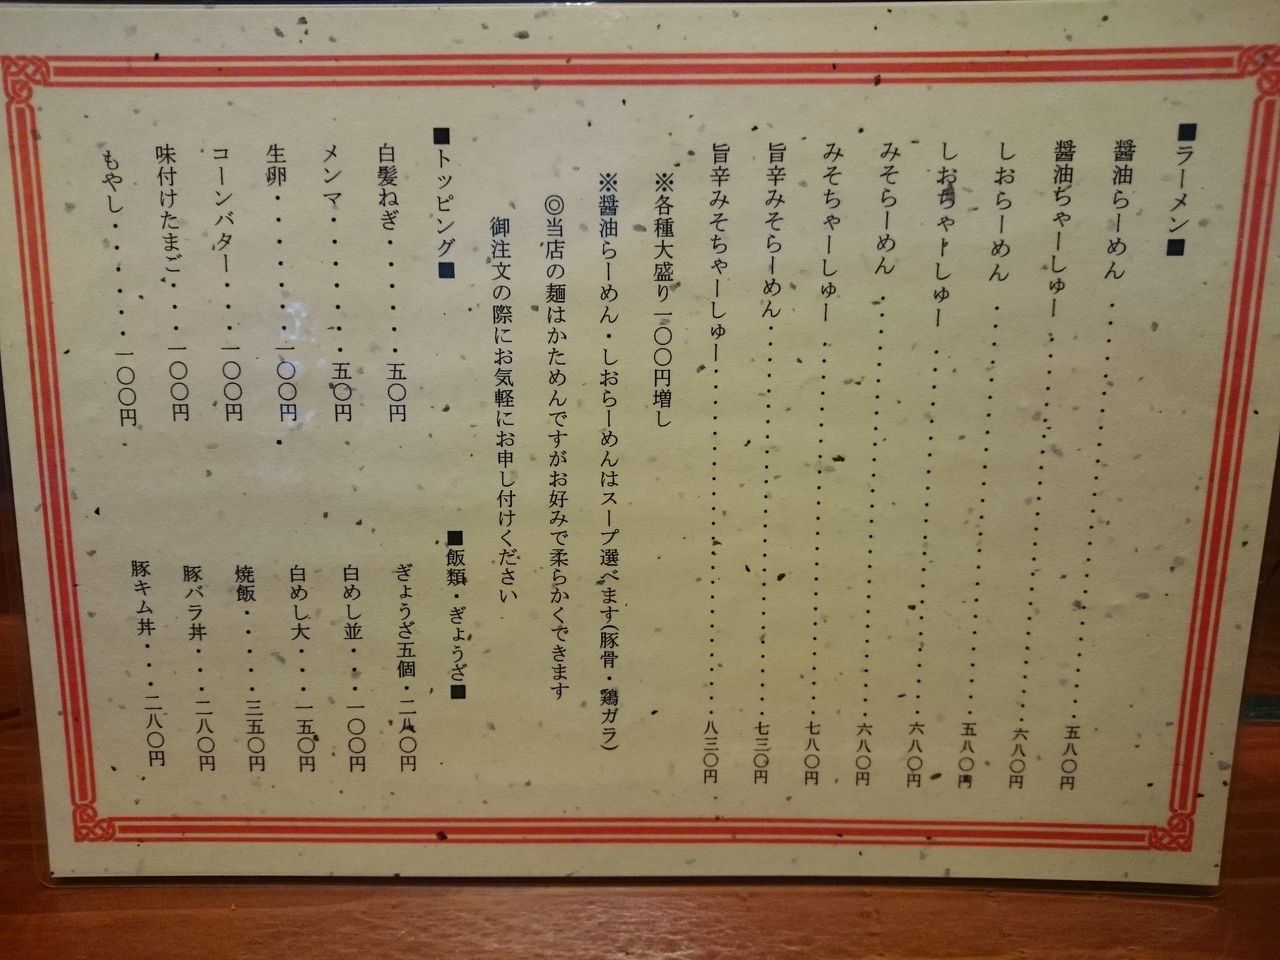 ■ラーメン■
醤油らーめん・・・・・・・・・・・・・・・・・・・・五八〇円
醤油ちゃーしゅー・・・・・・・・・・・・・・・・・・六八〇円
しおらーめん・・・・・・・・・・・・・・・・・・・・五八〇円
しおちゃーしゅー・・・・・・・・・・・・・・・・・・六八〇円
みそらーめん・・・・・・・・・・・・・・・・・・・・六八〇円
みそちゃーしゅー・・・・・・・・・・・・・・・・・・七八〇円
旨辛みそらーめん・・・・・・・・・・・・・・・・・・七三〇円
旨辛みそちゃーしゅー・・・・・・・・・・・・・・・・八三〇円
※各種大盛り一〇〇円増し
※醤油らーめん・しおらーめんはスープ選べます(豚骨・鶏ガラ)
◎当店の麺はかためんですがお好みで柔らかくできます
御注文の際にお気軽にお申し付けください
■トッピング■
白髪ねぎ・・・・・・五〇円
メンマ・・・・・・・五〇円
生卵・・・・・・・・一〇〇円
コーンバター・・・・一〇〇円
味付けたまご・・・一〇〇円
もやし・・・・・・一〇〇円
■飯類・ぎょうざ■
ぎょうざ五個・二八〇円
白めし並・・・一〇〇円
白めし大・・・一五〇円
焼飯・・・・・三五〇円
豚バラ丼・・・二八〇円
豚キム丼・・・二八〇円